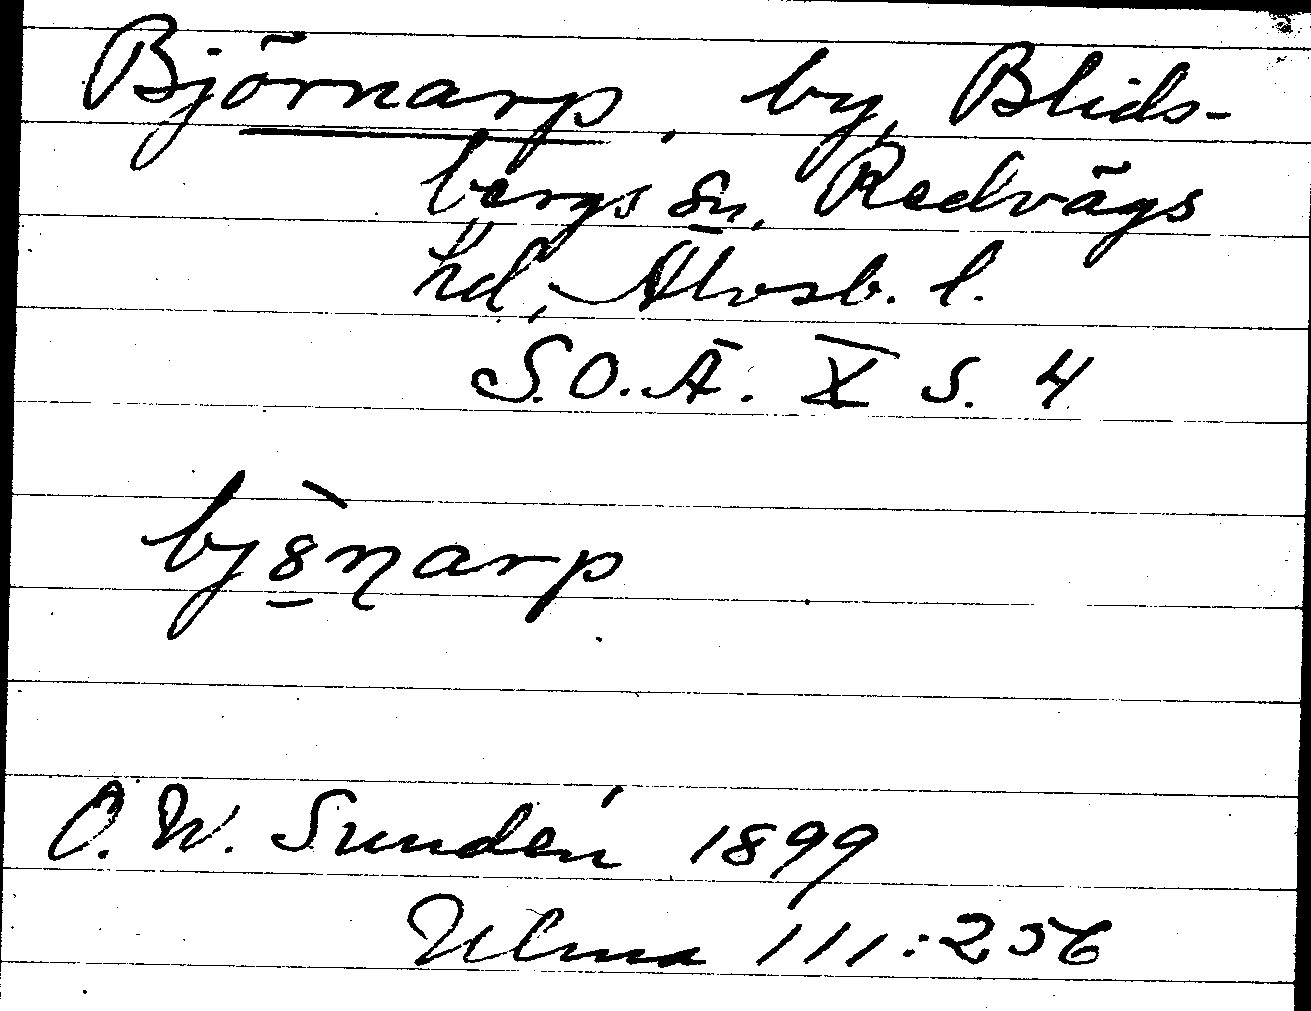 Björnarp, by, Blids-
bergs sn, Redvägs
hd, Älvsb. l.
S.O.Ä. X s. 4
bjö̀ṉarp
D. W. Sundén 1899
Ulma 111:256